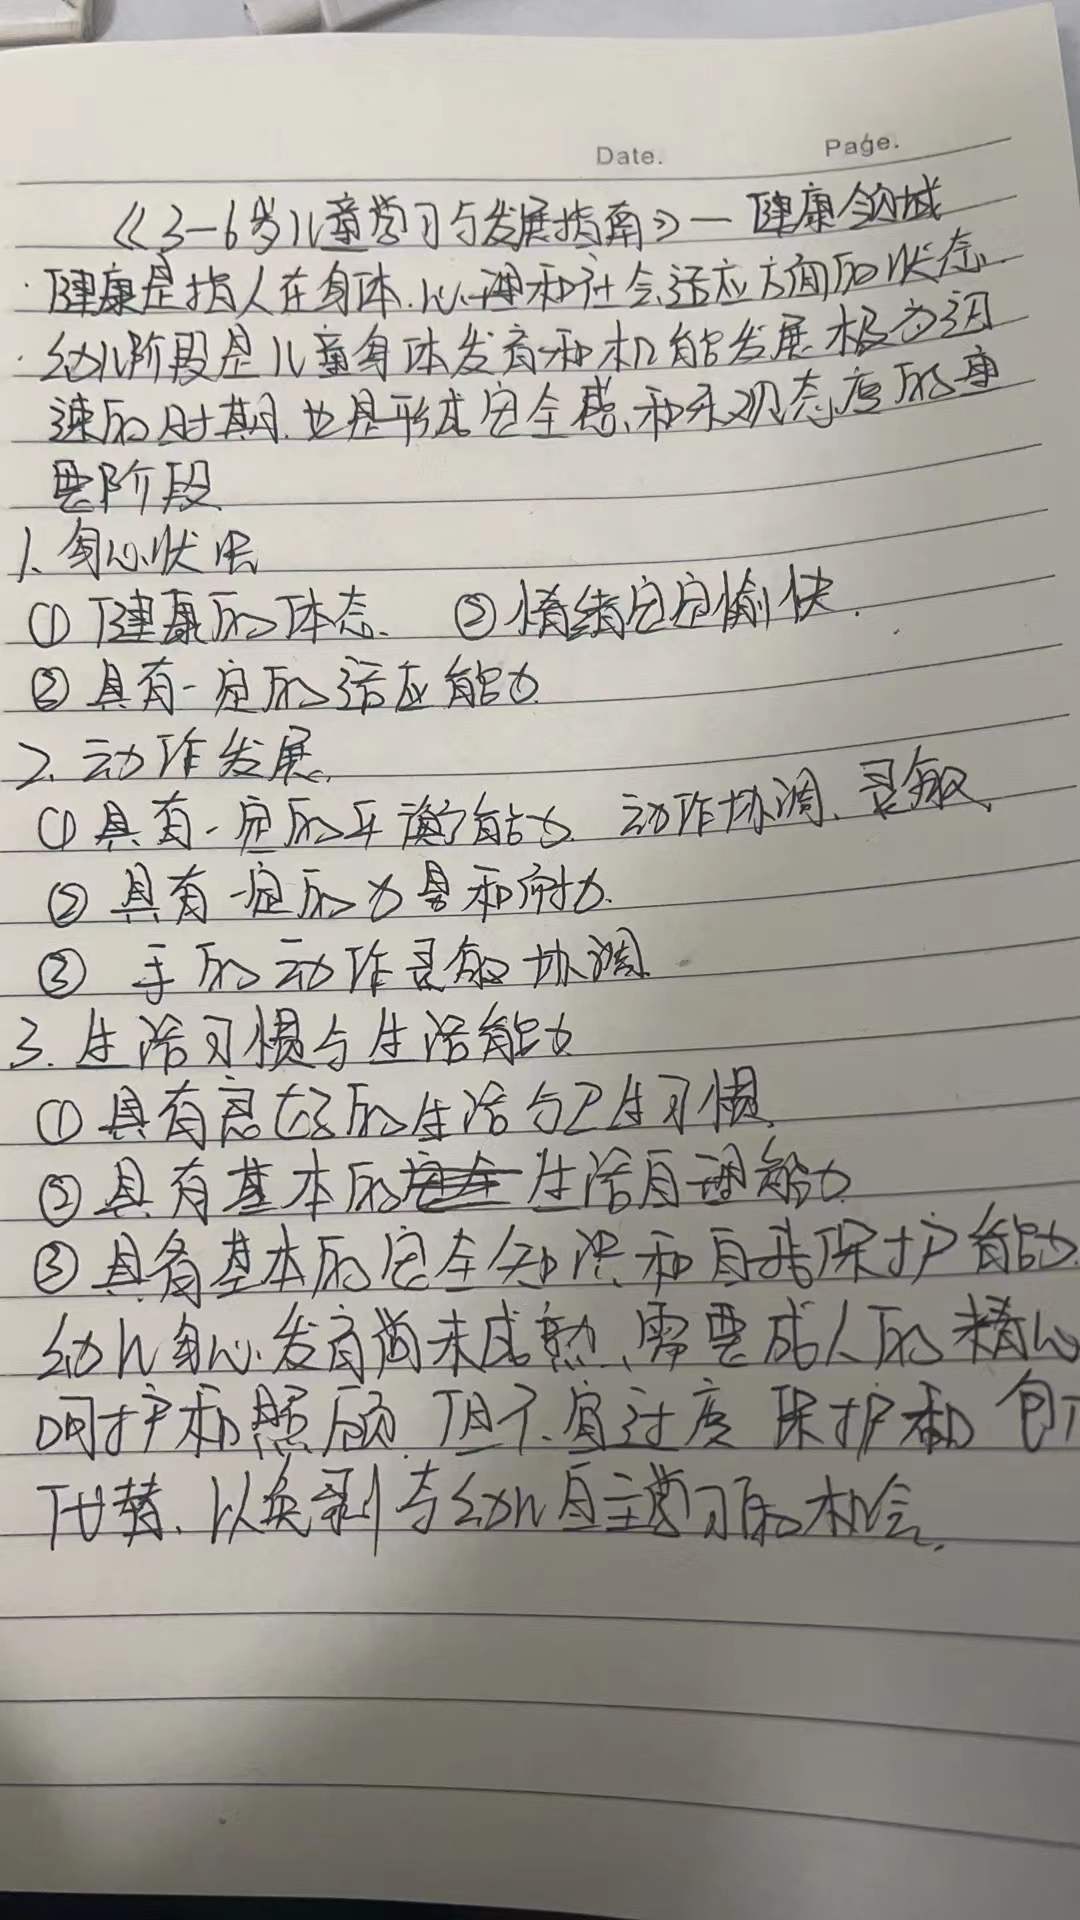 Date. Page.
《3-6岁儿童学习与发展指南》— 健康领域
·健康是指人在身体.心理和社会适应方面的状态.
·幼儿阶段是儿童身体发育和机能发展极为迅
速的时期.也是形成安全感、和乐观态度的重
要阶段
1.身心状况
①健康的体态. ②情绪安定愉快.
③具有一定的适应能力
2.动作发展.
①具有一定的平衡能力.动作协调、灵敏
②具有一定的力量和耐力.
③手的动作灵敏协调
3.生活习惯与生活能力
①具有良好的生活与卫生习惯
②具有基本的生活自理能力
③具备基本的安全知识和自我保护能力.
幼儿身心发育尚未成熟、需要成人的精心
呵护和照顾.但不宜过度保护和包办
代替.以免剥夺幼儿自主学习的机会.